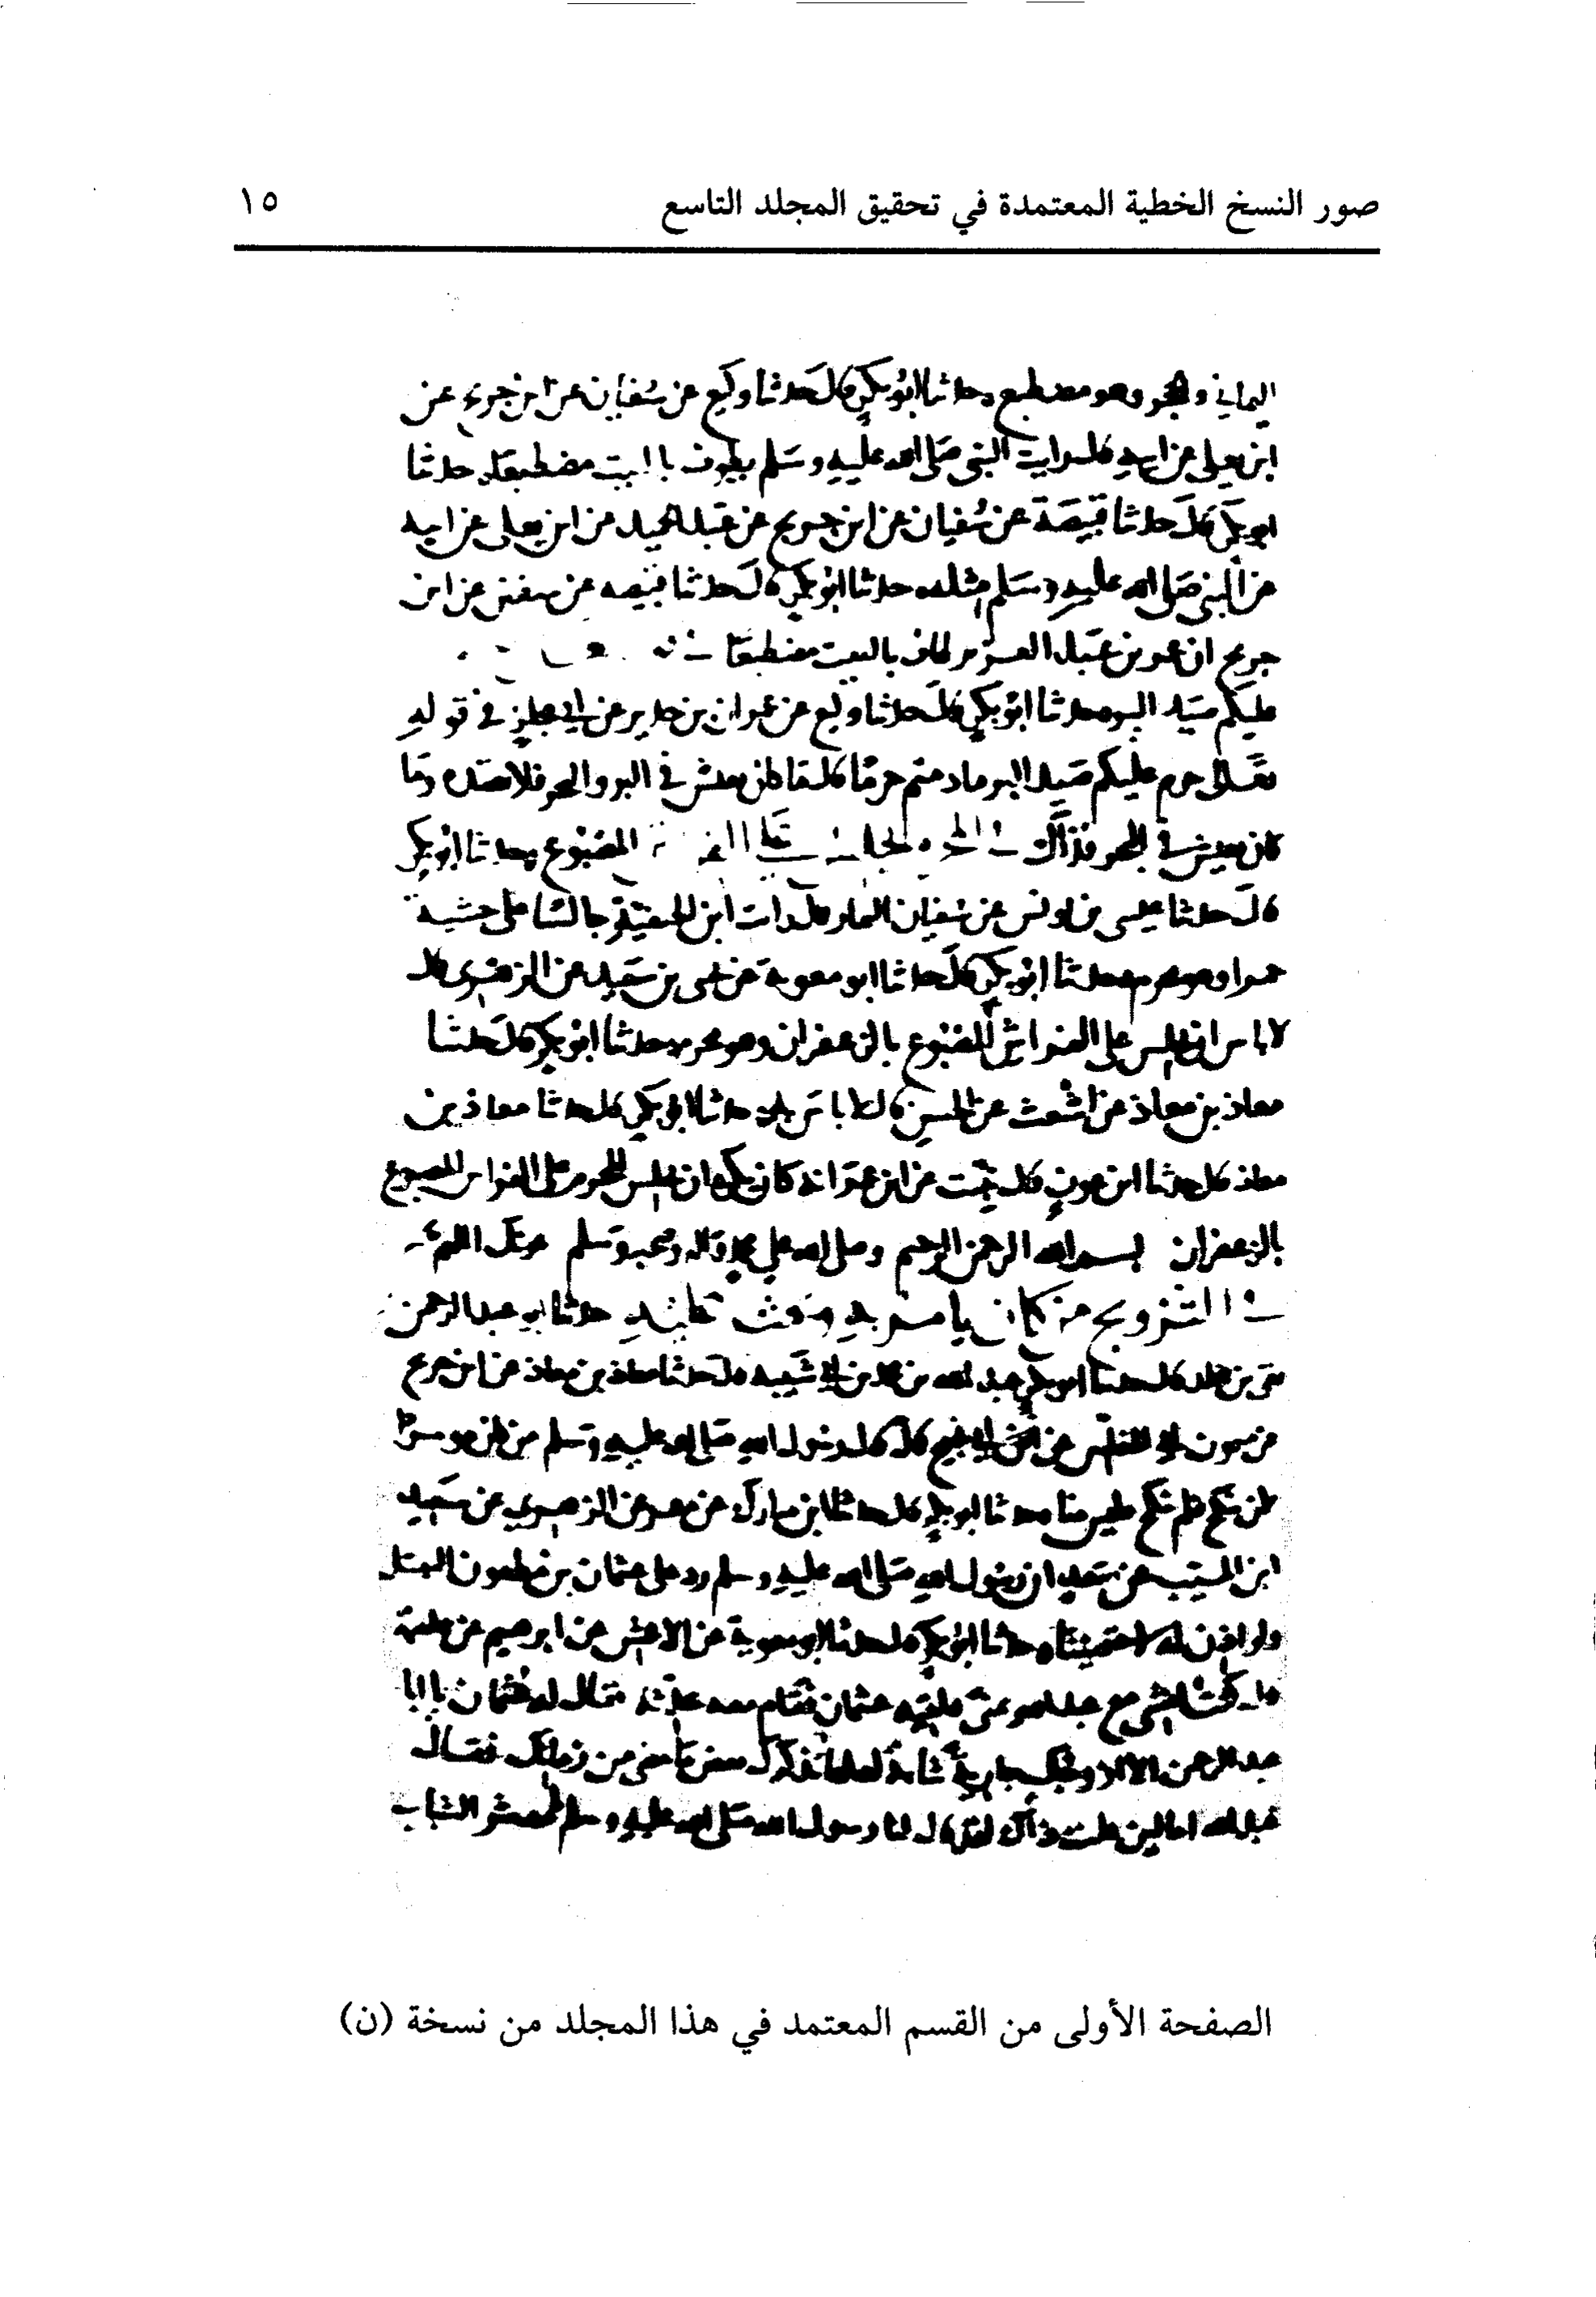 صور النسخ الخطية المعتمدة في تحقيق المجلد التاسع ١٥
اليماني والحجر وهو مضطبع حدثنا ابو بكر قال حدثنا وكيع عن سفيان عن ابن جريج عن
ابن يعلى عن ابيه قال رايت النبي صلى الله عليه وسلم يطوف بالبيت مضطبعا حدثنا
ابو بكر قال حدثنا قبيصة عن سفيان عن ابن جريج عن عبد الحميد عن ابن يعلى عن ابيه
عن النبي صلى الله عليه وسلم مثله حدثنا ابو بكر قال حدثنا قبيصه عن سفين عن ابن
جريج ان عمر بن عبد العزيز طاف بالبيت مضطبعا
عليكم صيد البر حدثنا ابو بكر قال حدثنا وكيع عن عمران بن حدير عن ابي مجلز في قوله
تعالى حرم عليكم صيد البر ما دمتم حرما قال ما كان يعيش في البر والبحر فلا تصده وما
كان يعيش في البحر فذاك في المصبوع حدثنا ابو بكر
قال حدثنا عيسى بن يونس عن سفيان قال رات ابن الحنفية جالسا على حشية
حمرا وهو محرم حدثنا ابو بكر قال حدثنا ابو معوية عن يحيى بن سعيد عن الزهري قال
لا باس ان يجلس على الفراش المصبوع بالزعفران وهو محرم حدثنا ابو بكر قال حدثنا
معاذ بن معاذ عن اشعث عن الحسن قال لا باس به حدثنا ابو بكر قال حدثنا معاذ بن
معاذ قال حدثنا ابن عون عن ابن عمر انه كان يكره ان يجلس المحرم على الفراش المصبوع
بالزعفران بسم الله الرحمن الرحيم وصلى الله على محمد وآله وصحبه وسلم عونك اللهم
في التزويج من كان يامر به ويحث عليه حدثنا ابو عبد الرحمن
بقي بن مخلد قال حدثنا ابو بكر عبد الله بن محمد بن ابي شيبه قال حدثنا معاذ بن معاذ عن ابن جريج
عن ميمون ابي المغلس عن ابي نجيح قال قال رسول الله صلى الله عليه وسلم من كان موسرا
لان ينكح فلم ينكح فليس منا حدثنا ابو بكر قال حدثنا ابن مبارك عن معمر عن الزهري عن سعيد
ابن المسيب عن سعد ان رسول الله صلى الله عليه وسلم رد على عثمان بن مظعون التبتل
ولو اذن له لاختصينا حدثنا ابو بكر قال حدثنا ابو معوية عن الاعمش عن ابرهيم عن علقمة
قال كنت امشي مع عبد الله بمنى فلقيه عثمان فقام معه يحدثه فقال له عثمان يا ابا
عبد الرحمن الا ازوجك جارية شابة لعلها تذكرك بعض ما مضى من زمانك فقال
عبد الله اما لين قلت ذاك لقد قال لنا رسول الله صلى الله عليه وسلم يا معشر الشباب
الصفحة الأولى من القسم المعتمد في هذا المجلد من نسخة (ن)